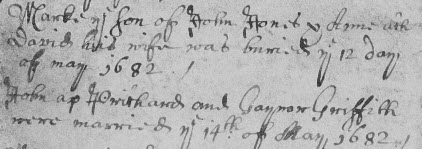 Marke ye son of John Jones & Anne
David his wife was buried ye 12 day
of may 1682 /
John ap Prithard and Gaynor Griffith
were married ye 14th of May 1682 /